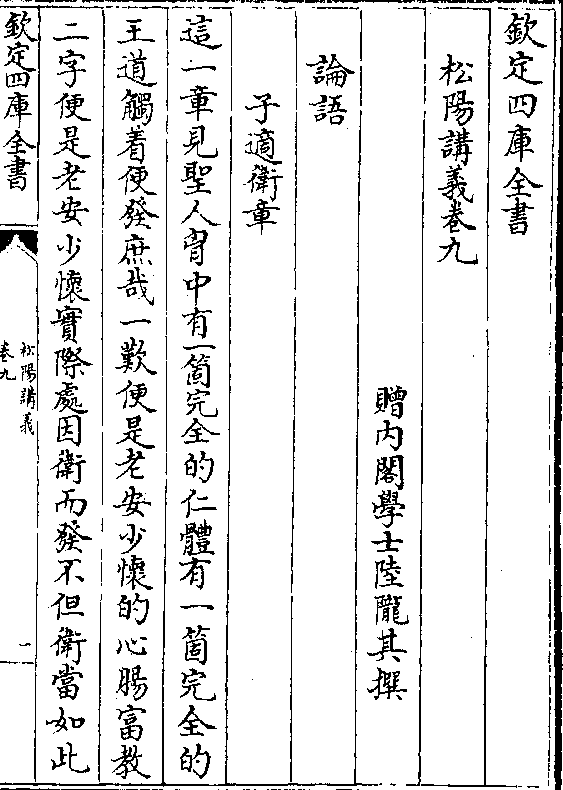 欽定四庫全書
松陽講義卷九
贈内閣學士陸隴其撰
論語
子適衛章
這一章見聖人胷中有一箇完全的仁體有一箇完全的
王道觸着便發庶哉一歎便是老安少懷的心腸富教
二字便是老安少懷實際處因衛而發不但衛當如此
欽定四庫全書
松陽講義
卷九
一